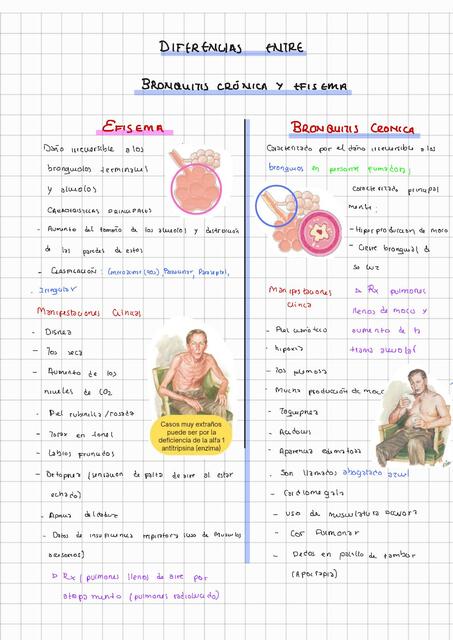 DIFERENCIAS ENTRE
BRONQUITIS CRÓNICA Y EFISEMA
EFISEMA
Daño irreversible a los
bronquiolos terminales
y alveolos
CARACTERISTICAS PRINCIPALES
- Aumento del tamaño de los alveolos y destruccion
de las paredes de estos
- Clasificación: Paraseptal,
Irregular
Manifestaciones Clinicas
- Disnea
- Tos seca
- Aumento de los
niveles de CO2
- Piel rubinilla / rosada
- Torax en tonel
- Labios fruncidos
- Ortopnea (sensacion de falta de aire al estar
echado)
- Apnea del dormir
- Datos de insuficiencia respiratoria (uso de Musculos
accesorios)
▷ Rx (pulmones llenos de aire por
atrapamiento (pulmones radiolucido)
Casos muy extraños
puede ser por la
deficiencia de la alfa 1
antitripsina (enzima)
BRONQUITIS CRONICA
Caracterizado por el daño irreversible a los
bronquios en personas fumadoras
Caracterizado principal
mente:
- Hiperproduccion de moco
- Cierre bronquial de
su luz
Manifestaciones
Clinica
▷ Rx pulmones
llenos de moco y
aumento de la
trama alveolar
- Piel cianotico
- hipoxia
- Tos flemosa
- Mucha produccion de moco
- Taquipnea
- Acidosis
- Apariencia edematosa
- Son llamados abogotado azul
- Cardiomegalia
- uso de musculatura accesora
- Cor Pulmonar
- Dedos en palillo de tambor